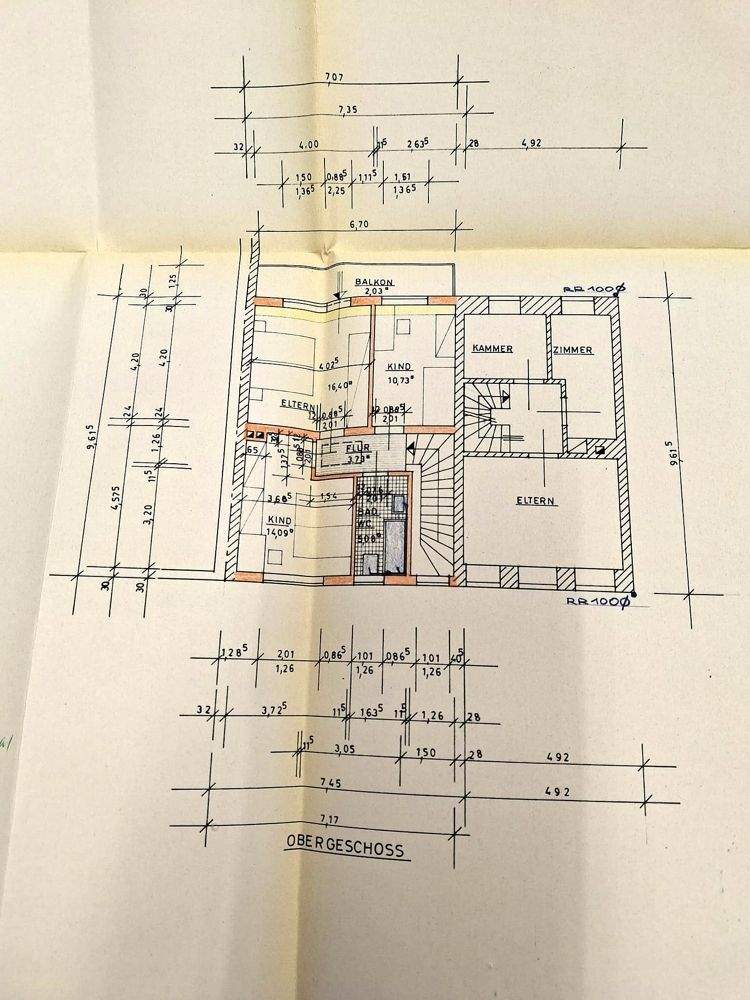 7,07
7,35
32 4,00 11⁵ 2,63⁵ 28 4,92
1,50 0,88⁵ 1,11⁵ 1,51
1,36⁵ 2,25 1,36⁵
6,70
BALKON
2,03
RR 100Ø
1,25
30 30
4,20 4,20
24 24
1,26
11⁵
9,61⁵
4,575
3,20
30 30
4,02⁵
16,40
ELTERN
0,88⁵
2,01
KIND
10,73
0,88⁵
2,01
KAMMER
ZIMMER
FLUR
3,73
65
1,37⁵
3,68⁵ 1,54
KIND
14,09
BAD
WC
5,08
ELTERN
9,61⁵
RR 100Ø
1,28⁵ 2,01 0,86⁵ 1,01 0,86⁵ 1,01 40⁵
1,26 1,26 1,26
32 3,72⁵ 11⁵ 1,63⁵ 11⁵ 1,26 28
11⁵ 3,05 1,50 28 4,92
7,45 4,92
7,17
OBERGESCHOSS